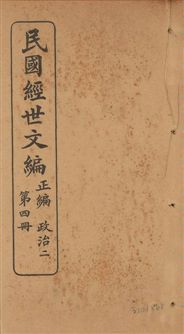 民國經世文編
正編 政治二
第四冊